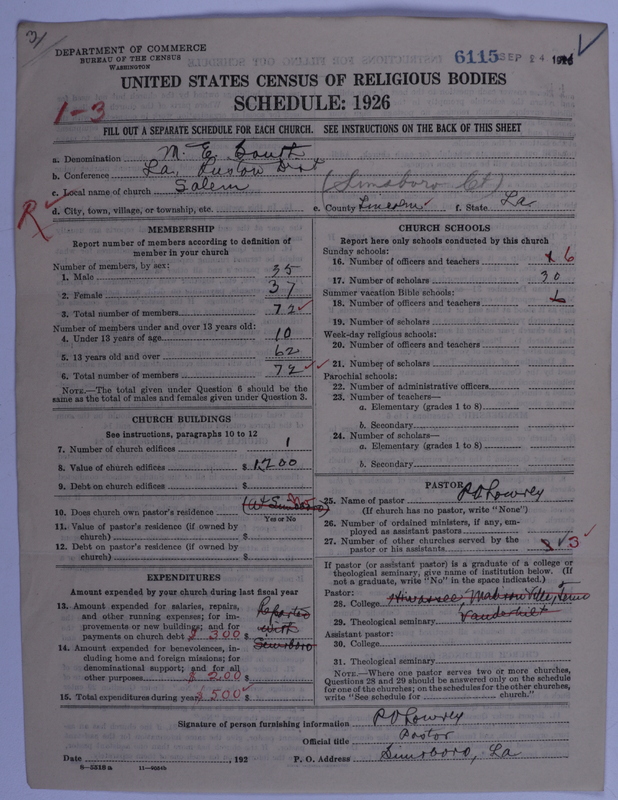 31
DEPARTMENT OF COMMERCE
BUREAU OF THE CENSUS
WASHINGTON
6115 SEP 24 1926
UNITED STATES CENSUS OF RELIGIOUS BODIES
SCHEDULE: 1926
1-3
FILL OUT A SEPARATE SCHEDULE FOR EACH CHURCH. SEE INSTRUCTIONS ON THE BACK OF THIS SHEET
a. Denomination M. E. South
b. Conference La, Ruston Dist
c. Local name of church Salem (Simsboro Ct)
d. City, town, village, or township, etc. e. County Lincoln f. State La
R
MEMBERSHIP
Report number of members according to definition of member in your church
Number of members, by sex:
1. Male 35
2. Female 37
3. Total number of members 72
Number of members under and over 13 years old:
4. Under 13 years of age 10
5. 13 years old and over 62
6. Total number of members 72
NOTE.—The total given under Question 6 should be the same as the total of males and females given under Question 3.
CHURCH BUILDINGS
See instructions, paragraphs 10 to 12
7. Number of church edifices 1
8. Value of church edifices $ 1200
9. Debt on church edifices $
10. Does church own pastor's residence
Yes or No
11. Value of pastor's residence (if owned by church) $
12. Debt on pastor's residence (if owned by church) $
EXPENDITURES
Amount expended by your church during last fiscal year
13. Amount expended for salaries, repairs, and other running expenses; for improvements or new buildings; and for payments on church debt $ 300 $ Reported with
14. Amount expended for benevolences, including home and foreign missions; for denominational support; and for all other purposes $ 200 $ Simsboro
15. Total expenditures during year $ 500 $
CHURCH SCHOOLS
Report here only schools conducted by this church
Sunday schools:
16. Number of officers and teachers 6
17. Number of scholars 30
Summer vacation Bible schools:
18. Number of officers and teachers 6
19. Number of scholars
Week-day religious schools:
20. Number of officers and teachers
21. Number of scholars
Parochial schools:
22. Number of administrative officers
23. Number of teachers—
a. Elementary (grades 1 to 8)
b. Secondary
24. Number of scholars—
a. Elementary (grades 1 to 8)
b. Secondary
PASTOR
25. Name of pastor P O Lowrey
(If church has no pastor, write "None")
26. Number of ordained ministers, if any, employed as assistant pastors
27. Number of other churches served by the pastor or his assistants 3
If pastor (or assistant pastor) is a graduate of a college or theological seminary, give name of institution below. (If not a graduate, write "No" in the space indicated.)
Pastor:
28. College Hiwassee
29. Theological seminary Vanderbilt
Assistant pastor:
30. College
31. Theological seminary
NOTE.—Where one pastor serves two or more churches, Questions 28 and 29 should be answered only on the schedule for one of the churches; on the schedules for the other churches, write "See schedule for church."
Signature of person furnishing information P O Lowrey
Official title Pastor
Date , 192 P. O. Address Simsboro, La
8—5318a 11—9554b